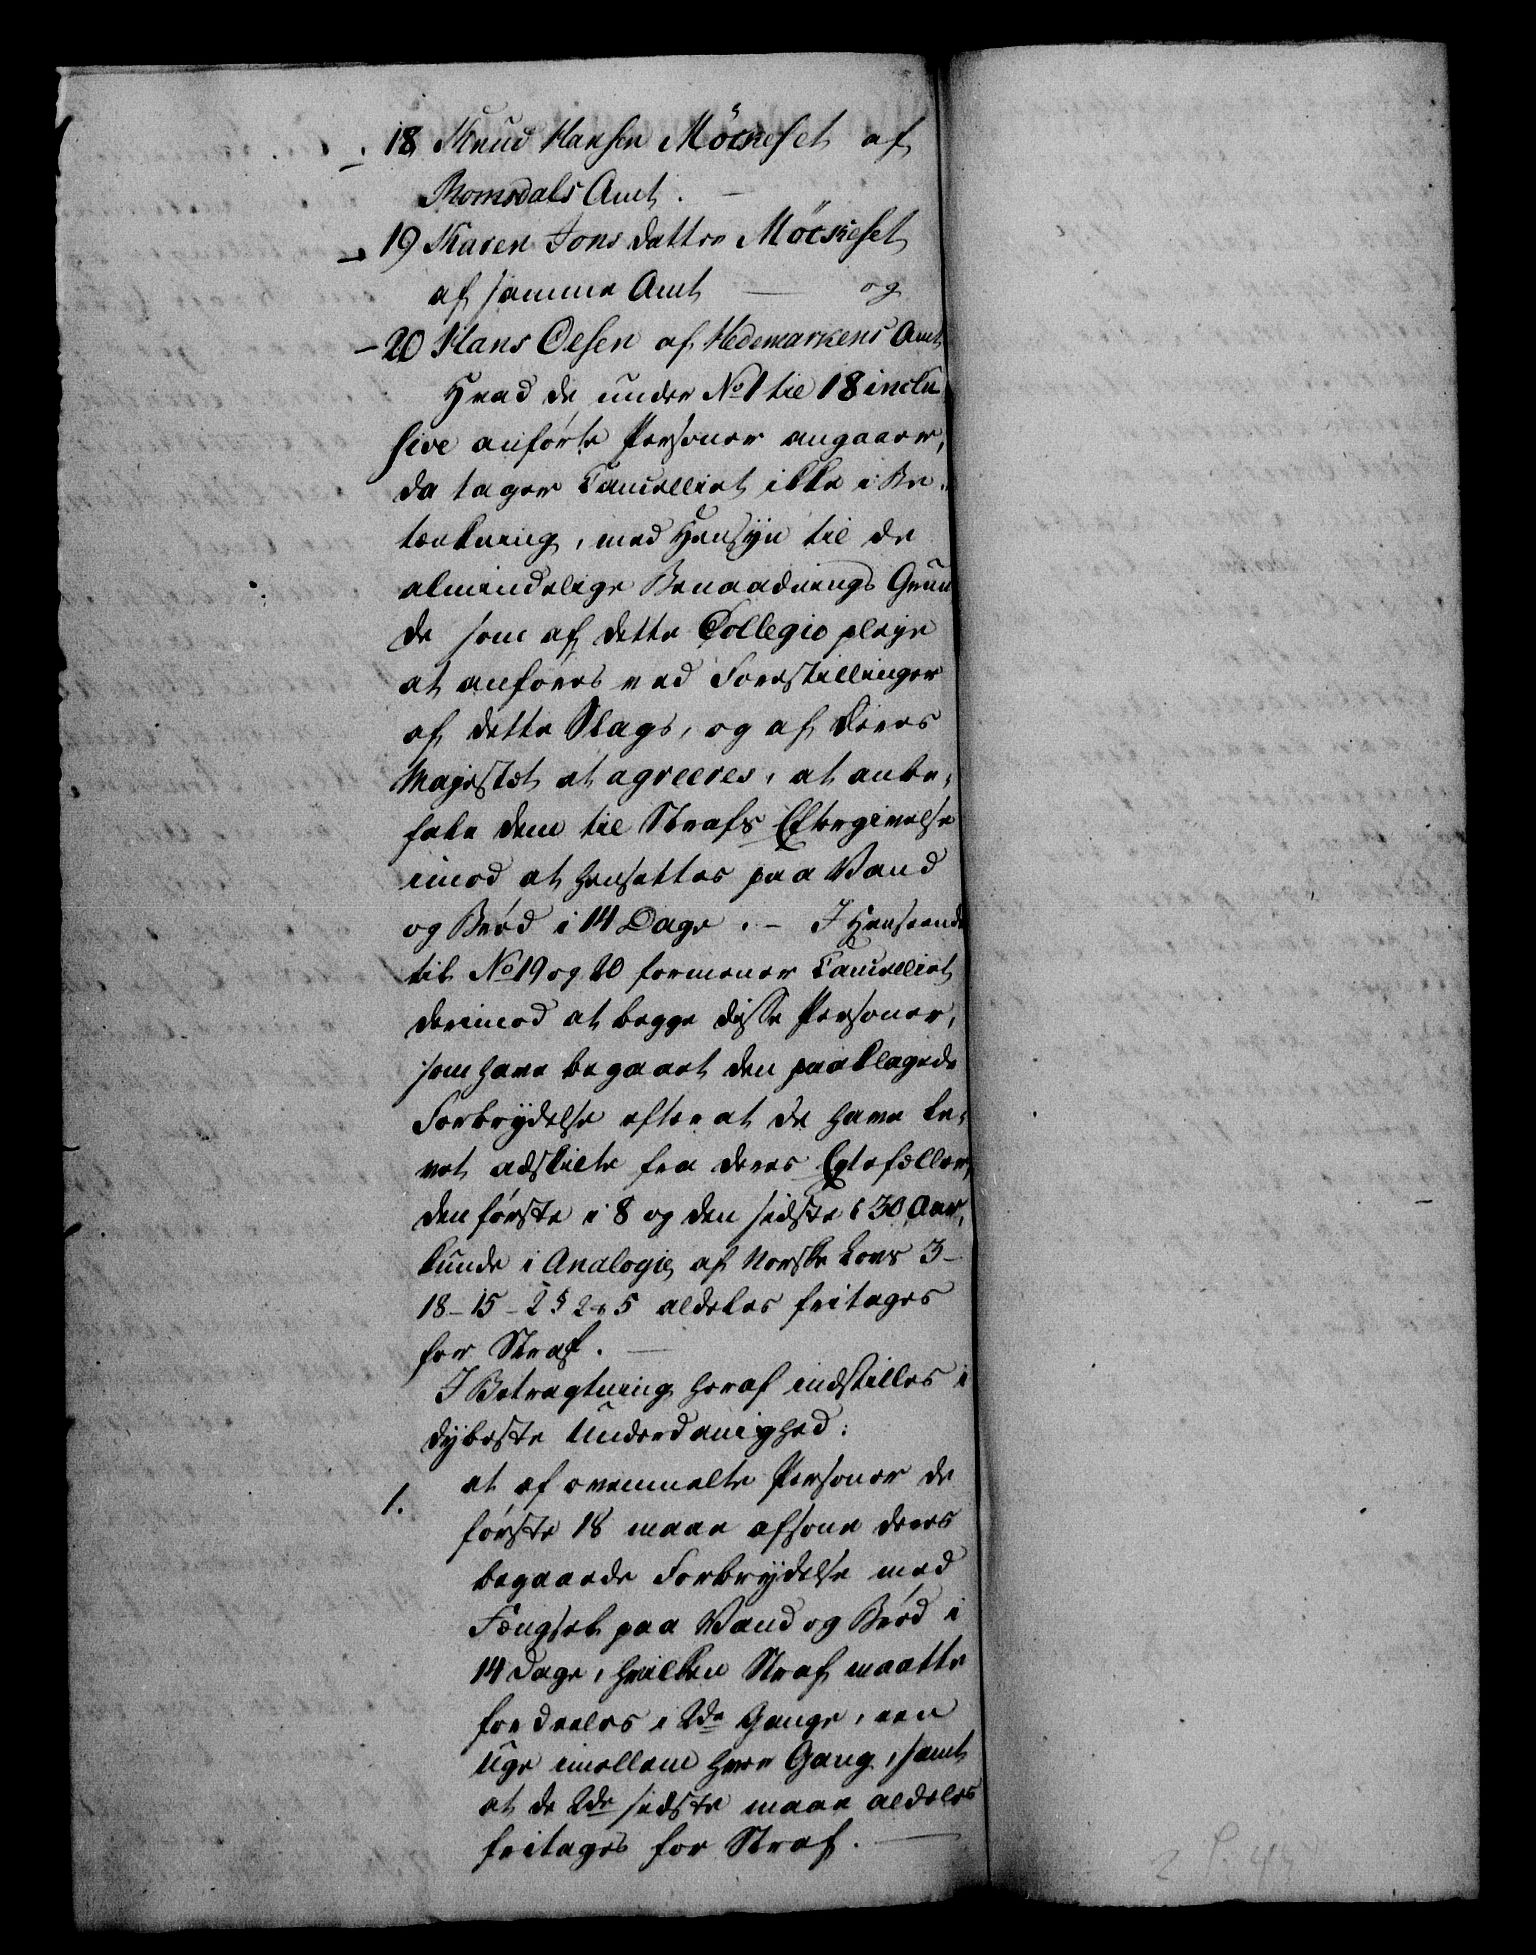 18 Knud Hansen Möcsheset af
Romsdals Amt. —
19 Karen Jonsdatter Möcskeset
af samme Amt — og
20 Hans Olsen af Hedemarkens Amt
Hvad de under No 1 til 18 inclu
sive anförte Personer angaaer,
da tager Cancelliet ikke i Be-
tænkning, med Hensyn til de
almindelige Benaadnings Grun
de som af dette Collegio pleye
at anföres ved Forestillinger
af dette Slags, og af Deres
Majestæt at agreeres, at anbe-
fale dem til Strafs Eftergivelse
imod at hensettes paa Vand
og Bröd i 14 Dage. – I Henseende
til No 19 og 20 formener Cancelliet
derimod at begge disse Personer,
som have begaaet den paaklagede
Forbrydelse efter at de have le-
vet adskilte fra deres Egtefæller,
den förste i 8 og den sidste i 30 Aar,
kunde i Analogie af Norske Lovs 3-
18-15-2 § 2 5 aldeles fritages
for Straf. —
I Betragtning heraf indstilles i
dybeste Underdanighed:
1. at af ovenmelte Personer de
förste 18 maae afsone deres
begaaede Forbrydelse med
Fængsel paa Vand og Bröd i
14 Dage, hvilken Straf maatte
fordeeles i 2de Gange, een
Uge imellem hver Gang, samt
at de 2de sidste maae aldeles
fritages for Straf. —